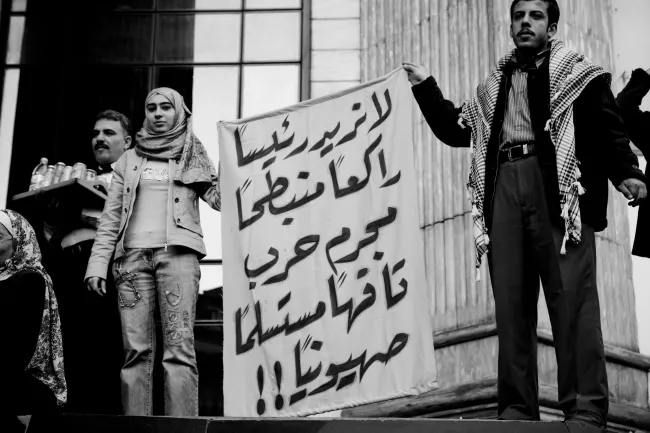 لا نريد رئيساً
راكعاً منبطحاً
مجرم حرب
تافهاً مستسلماً
صهيونياً!!